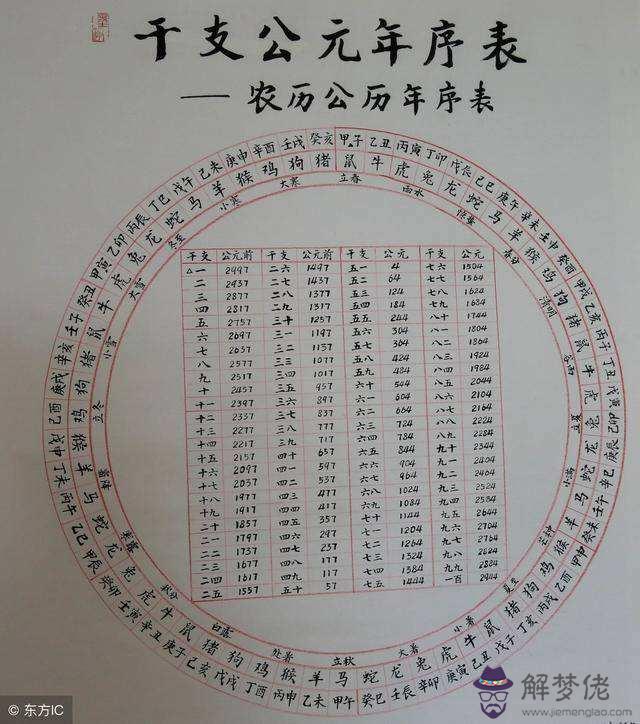 干支公元年序表
——农历公历年序表
甲子 乙丑 丙寅 丁卯 戊辰 己巳 庚午 辛未 壬申 癸酉 甲戌 乙亥 丙子 丁丑 戊寅 己卯 庚辰 辛巳 壬午 癸未 甲申 乙酉 丙戌 丁亥 戊子 己丑 庚寅 辛卯 壬辰 癸巳 甲午 乙未 丙申 丁酉 戊戌 己亥 庚子 辛丑 壬寅 癸卯 甲辰 乙巳 丙午 丁未 戊申 己酉 庚戌 辛亥 壬子 癸丑 甲寅 乙卯 丙辰 丁巳 戊午 己未 庚申 辛酉 壬戌 癸亥
鼠 牛 虎 兔 龙 蛇 马 羊 猴 鸡 狗 猪 鼠 牛 虎 兔 龙 蛇 马 羊 猴 鸡 狗 猪 鼠 牛 虎 兔 龙 蛇 马 羊 猴 鸡 狗 猪 鼠 牛 虎 兔 龙 蛇 马 羊 猴 鸡 狗 猪 鼠 牛 虎 兔 龙 蛇 马 羊 猴 鸡 狗 猪
立春 雨水 春分 清明 谷雨 立夏 小满 芒种 夏至 小暑 大暑 立秋 处暑 白露 秋分 寒露 霜降 立冬 小雪 大雪 冬至 小寒 大寒
干支 公元前 干支 公元前 干支 公元 干支 公元
△一 2997 二六 1497 五一 4 七六 1504
二 2937 二七 1437 五二 64 七七 1564
三 2877 二八 1377 五三 124 七八 1624
四 2817 二九 1317 五四 184 七九 1684
五 2757 三十 1257 五五 244 八十 1744
六 2697 三一 1197 五六 304 八一 1804
七 2637 三二 1137 五七 364 八二 1864
八 2577 三三 1077 五八 424 八三 1924
九 2517 三四 1017 五九 484 八四 1984
十 2457 三五 957 六十 544 八五 2044
十一 2397 三六 897 六一 604 八六 2104
十二 2337 三七 837 六二 664 八七 2164
十三 2277 三八 777 六三 724 八八 2224
十四 2217 三九 717 六四 784 八九 2284
十五 2157 四十 657 六五 844 九十 2344
十六 2097 四一 597 六六 904 九一 2404
十七 2037 四二 537 六七 964 九二 2464
十八 1977 四三 477 六八 1024 九三 2524
十九 1917 四四 417 六九 1084 九四 2584
二十 1857 四五 357 七十 1144 九五 2644
二一 1797 四六 297 七一 1204 九六 2704
二二 1737 四七 237 七二 1264 九七 2764
二三 1677 四八 177 七三 1324 九八 2824
二四 1617 四九 117 七四 1384 九九 2884
二五 1557 五十 57 七五 1444 一百 2944
解梦佬
www.jiemenglao.com
东方IC